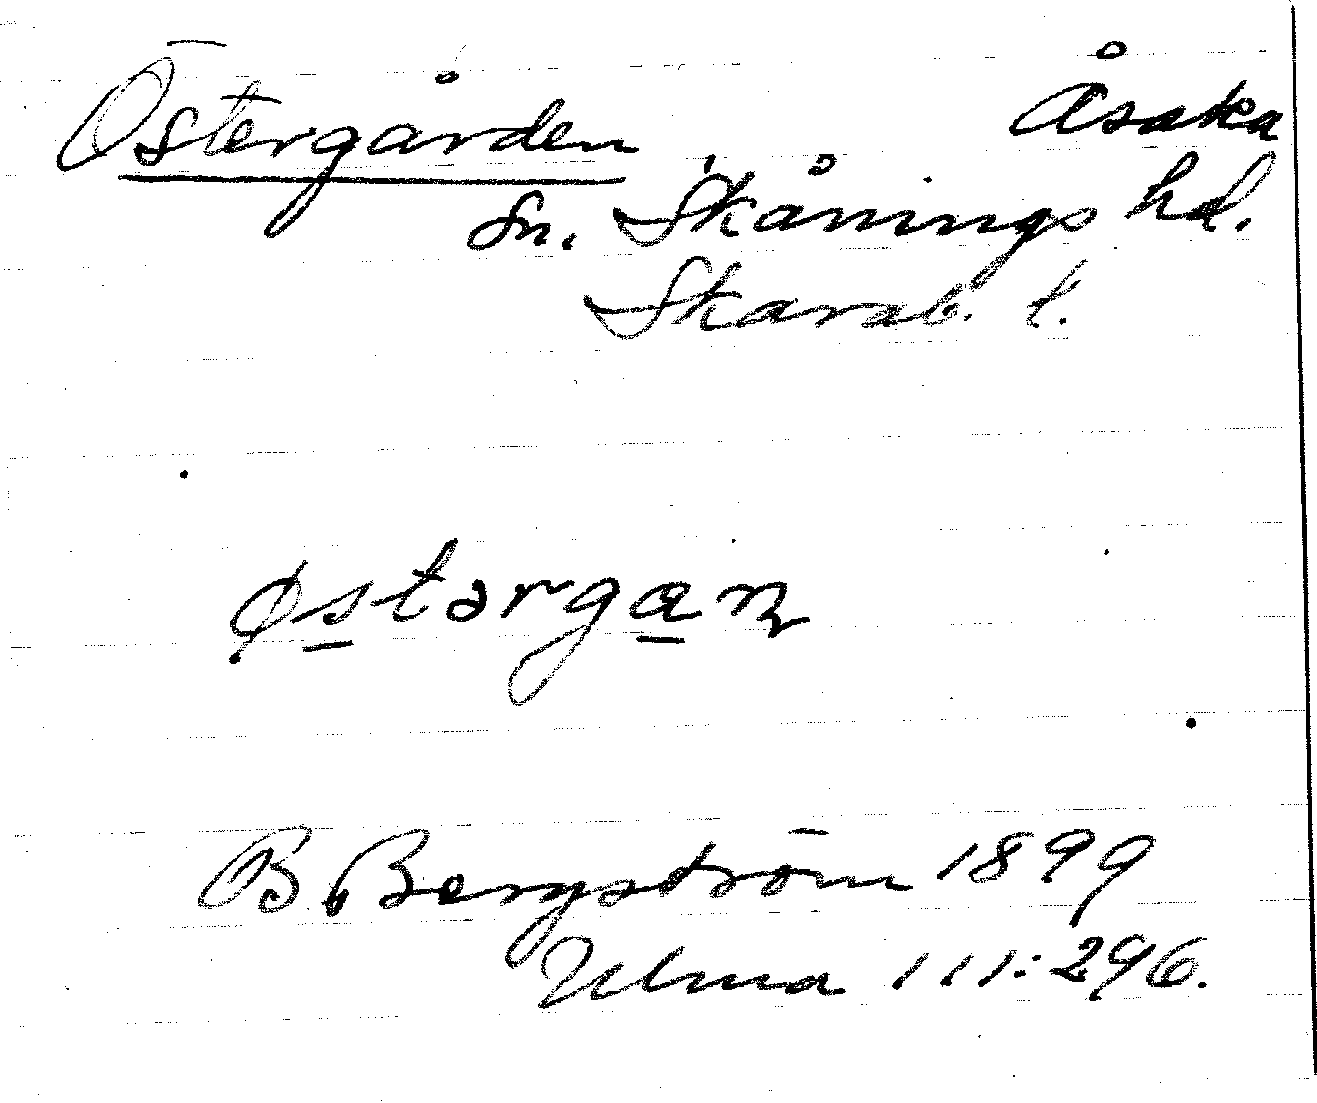 Östergården Åsaka
Sn. Skånings hd.
Skarab. t.
østərgan
B Bergström 1899
Ulma 111:296.